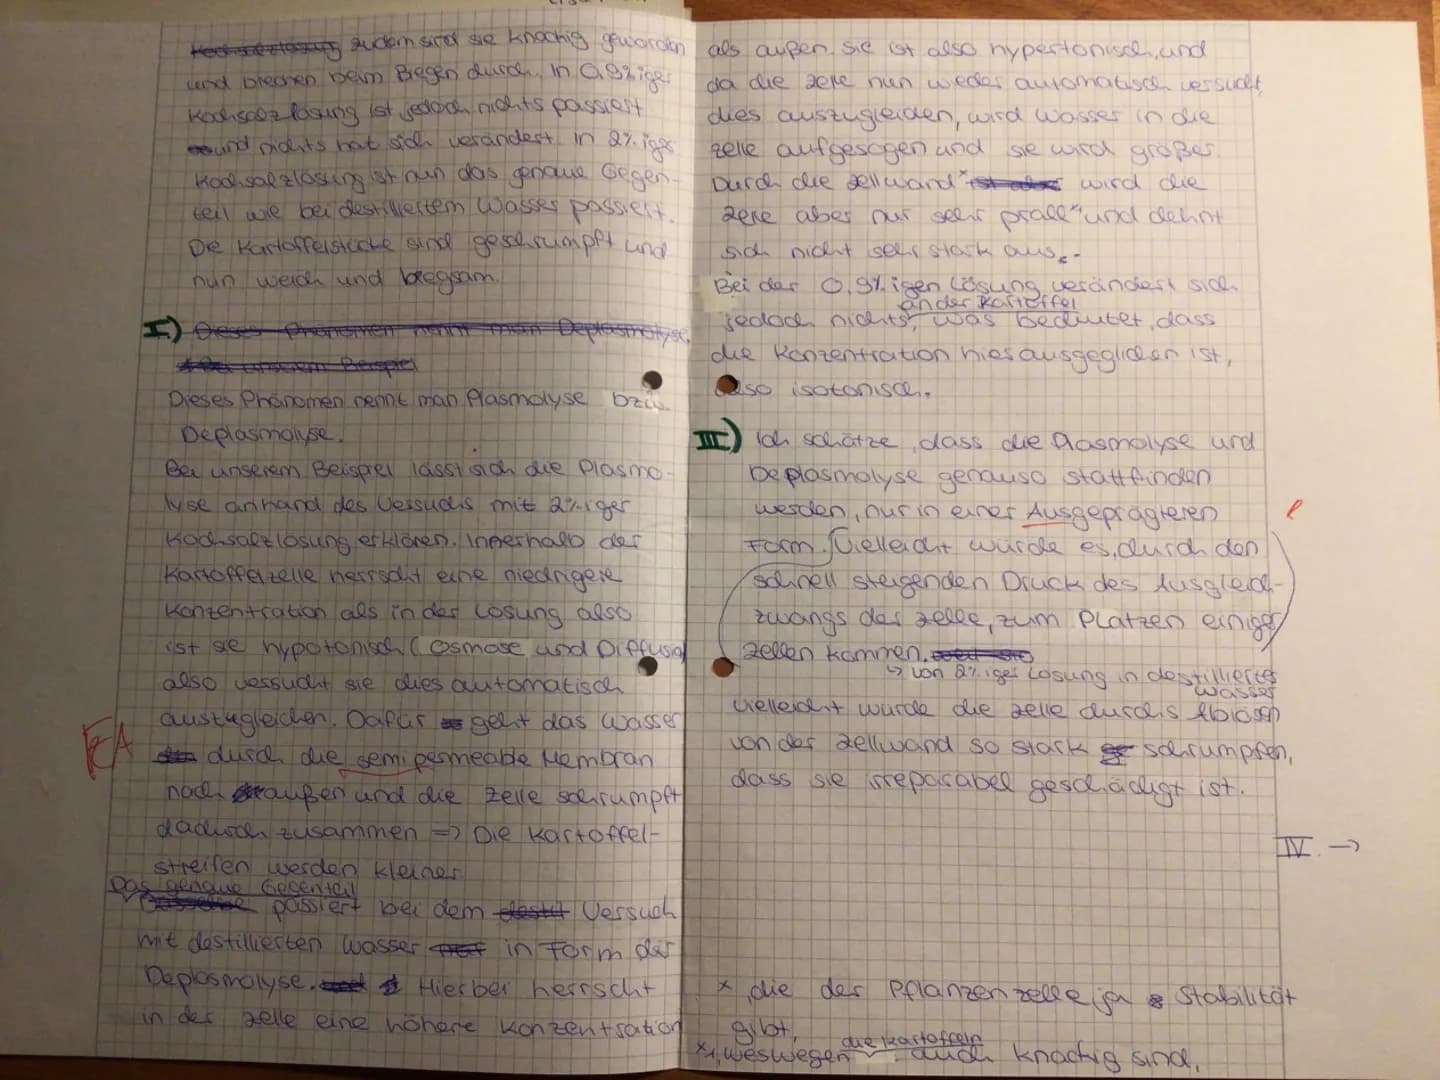 zudem sind sie knackig geworden
und brechen beim Biegen durch. In 0,9%iger
Kochsalzlösung ist jedoch nichts passiert
und nichts hat sich verändert. In 2%iger
Kochsalzlösung ist nun das genaue Gegen-
teil wie bei destilliertem Wasser passiert.
Die Kartoffelstücke sind geschrumpft und
nun weich und biegsam.
II.) Dieses Phänomen nennt man Deplasmolyse.
Dieses Phänomen nennt man Plasmolyse bzw.
Deplasmolyse.
Bei unserem Beispiel lässt sich die Plasmo-
lyse anhand des Versuchs mit 2%iger
Kochsalzlösung erklären. Innerhalb der
Kartoffelzelle herrscht eine niedrigere
Konzentration als in der Lösung also
ist sie hypotonisch (Osmose und Diffusion)
also versucht sie dies automatisch
auszugleichen. Dafür geht das Wasser
FA durch die semipermeable Membran
nach außen und die Zelle schrumpft
dadurch zusammen => Die Kartoffel-
streifen werden kleiner
Das genaue Gegenteil
passiert bei dem Versuch
mit destillierten Wasser in Form der
Deplasmolyse. Hierbei herrscht
in der Zelle eine höhere Konzentration
als außen. Sie ist also hypertonisch, und
da die Zelle nun wieder automatisch versucht,
dies auszugleichen, wird Wasser in die
Zelle aufgesogen und sie wird größer.
Durch die Zellwand wird die
Zelle aber nur sehr prall und dehnt
sich nicht sehr stark aus.
Bei der 0,9%igen Lösung verändert sich
an der Kartoffel
jedoch nichts, was bedeutet, dass
die Konzentration hier ausgeglichen ist,
also isotonisch.
III.) Ich schätze, dass die Plasmolyse und
Deplasmolyse genauso stattfinden
werden, nur in einer Ausgeprägteren
Form. Vielleicht würde es, durch den
schnell steigenden Druck des Ausgleich-
zwangs der Zelle, zum Platzen einiger
Zellen kommen.
↳ von 2%iger Lösung in destilliertes
Wasser
Vielleicht würde die Zelle durchs Ablösen
von der Zellwand so stark schrumpfen,
dass sie irreparabel geschädigt ist.
IV. ->
x, die der Pflanzenzelle ja Stabilität
gibt,
die Kartoffeln
x, weswegen auch knackig sind,